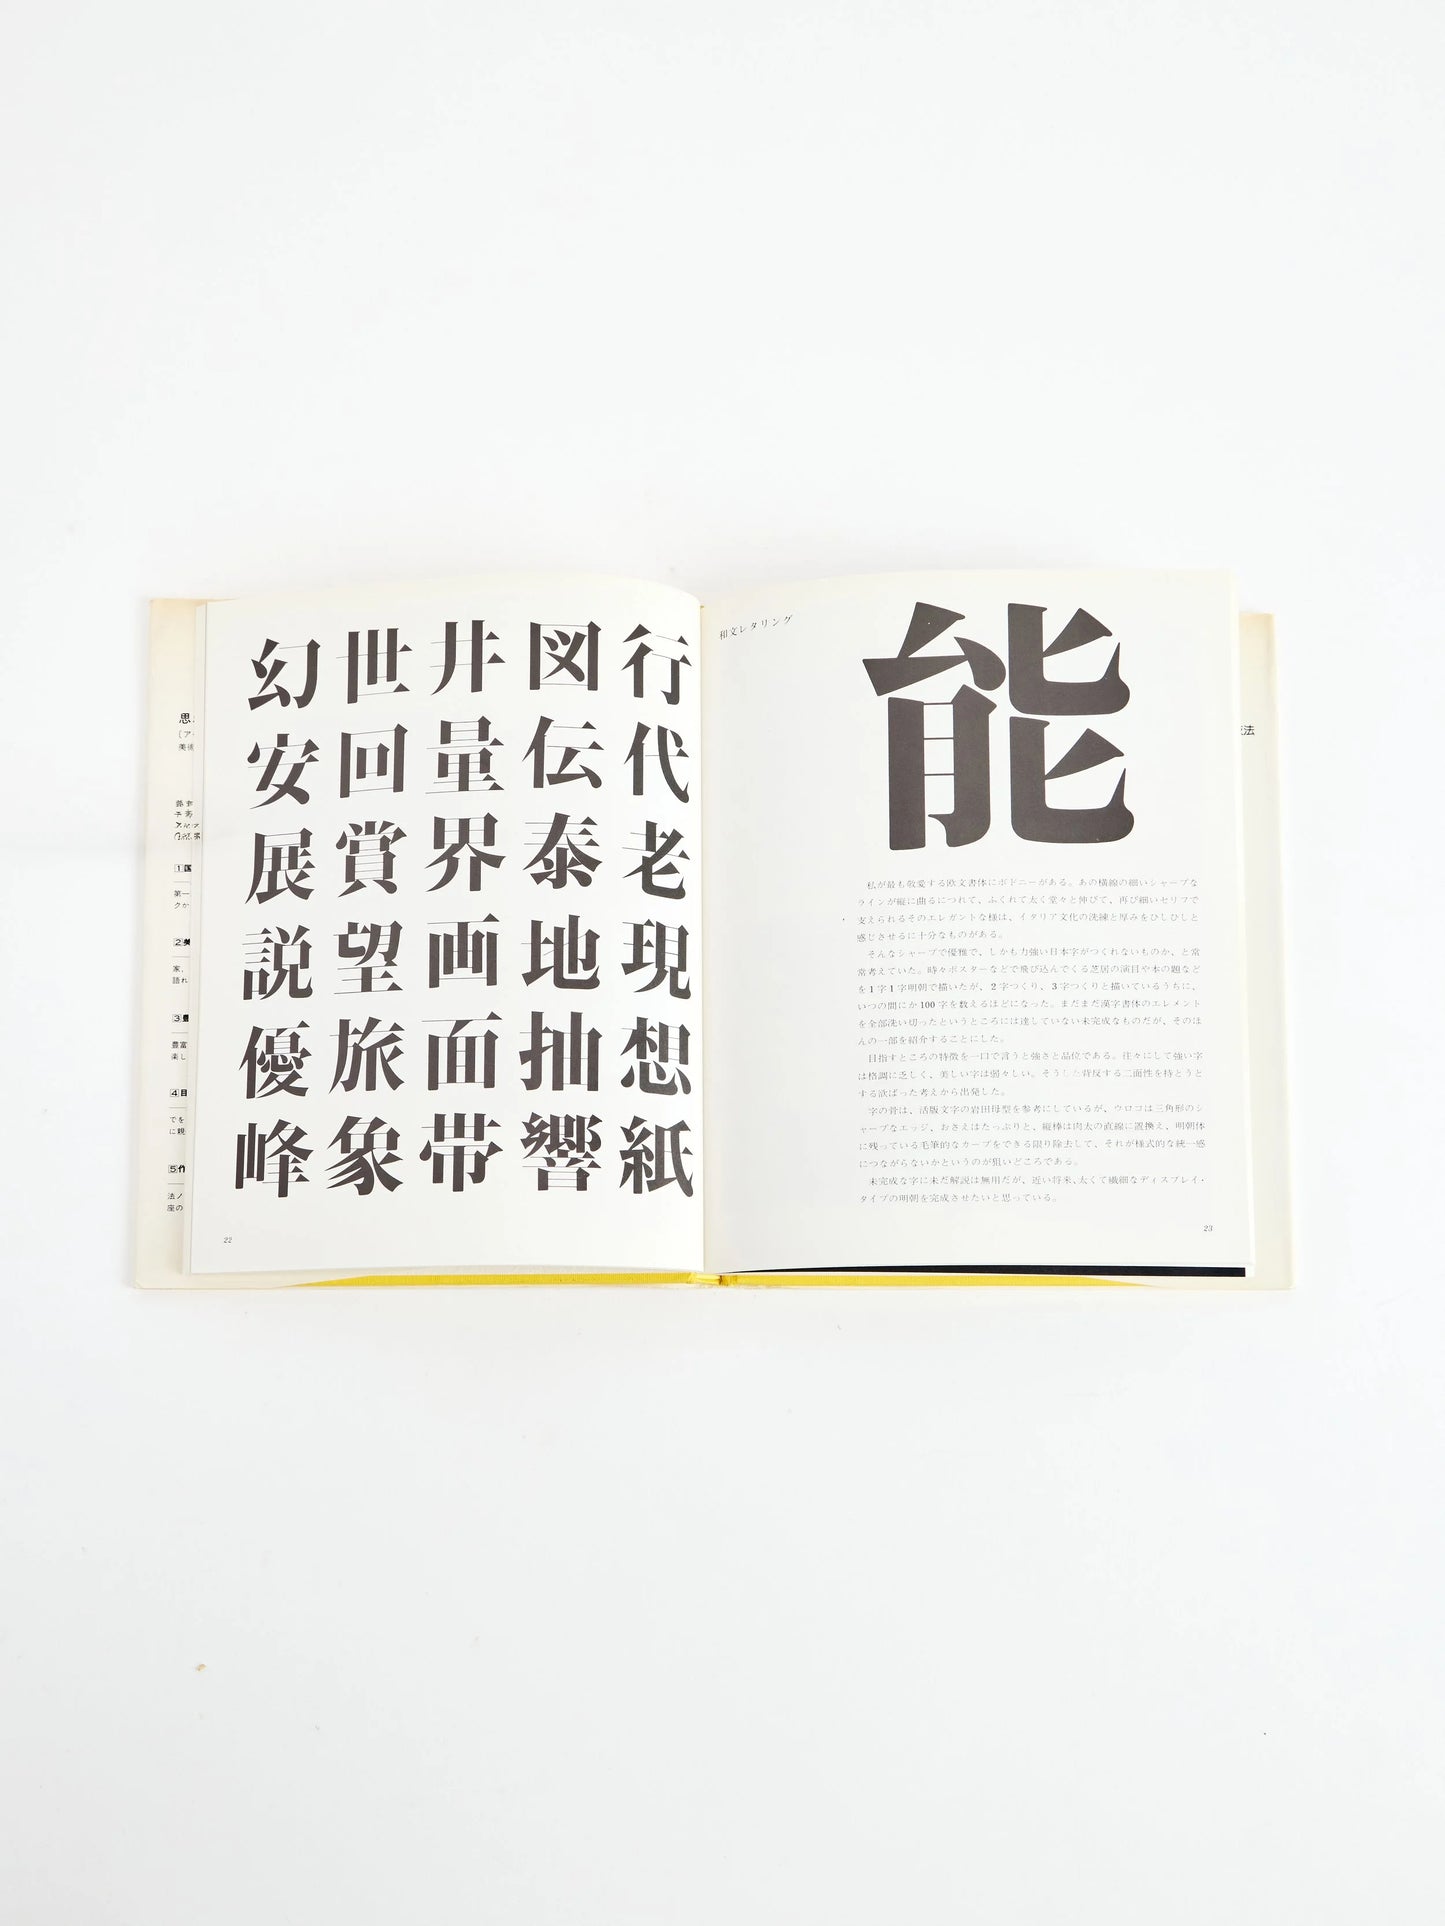 思
美術
1
第一
クか
2美
家、
語れ
3
豊富
楽し
4目
でを
に親
5作
法ノ
座の
幻世井図行
安回量伝代
展賞界泰老
説望画地現
優旅面抽想
峰象帯響紙
22
和文レタリング
能
私が最も敬愛する欧文書体にボドニーがある。あの横線の細いシャープな
ラインが縦に曲るにつれて、ふくれて太く堂々と伸びて、再び細いセリフで
支えられるそのエレガントな様は、イタリア文化の洗練と厚みをひしひしと
感じさせるに十分なものがある。
そんなシャープで優雅で、しかも力強い日本字がつくれないものか、と常
常考えていた。時々ポスターなどで飛び込んでくる芝居の演目や本の題など
を1字1字明朝で描いたが、2字つくり、3字つくりと描いているうちに、
いつの間にか100字を数えるほどになった。まだまだ漢字書体のエレメント
を全部洗い切ったというところには達していない未完成なものだが、そのほ
んの一部を紹介することにした。
目指すところの特徴を一口で言うと強さと品位である。往々にして強い字
は格調に乏しく、美しい字は弱々しい。そうした背反する二面性を持とうと
する欲ばった考えから出発した。
字の骨は、活版文字の岩田母型を参考にしているが、ウロコは三角形のシ
ャープなエッジ、おさえはたっぷりと、縦棒は肉太の直線に置換え、明朝体
に残っている毛筆的なカーブをできる限り除去して、それが様式的な統一感
につながらないかというのが狙いどころである。
未完成な字に未だ解説は無用だが、近い将来、太くて繊細なディスプレイ・
タイプの明朝を完成させたいと思っている。
23
法